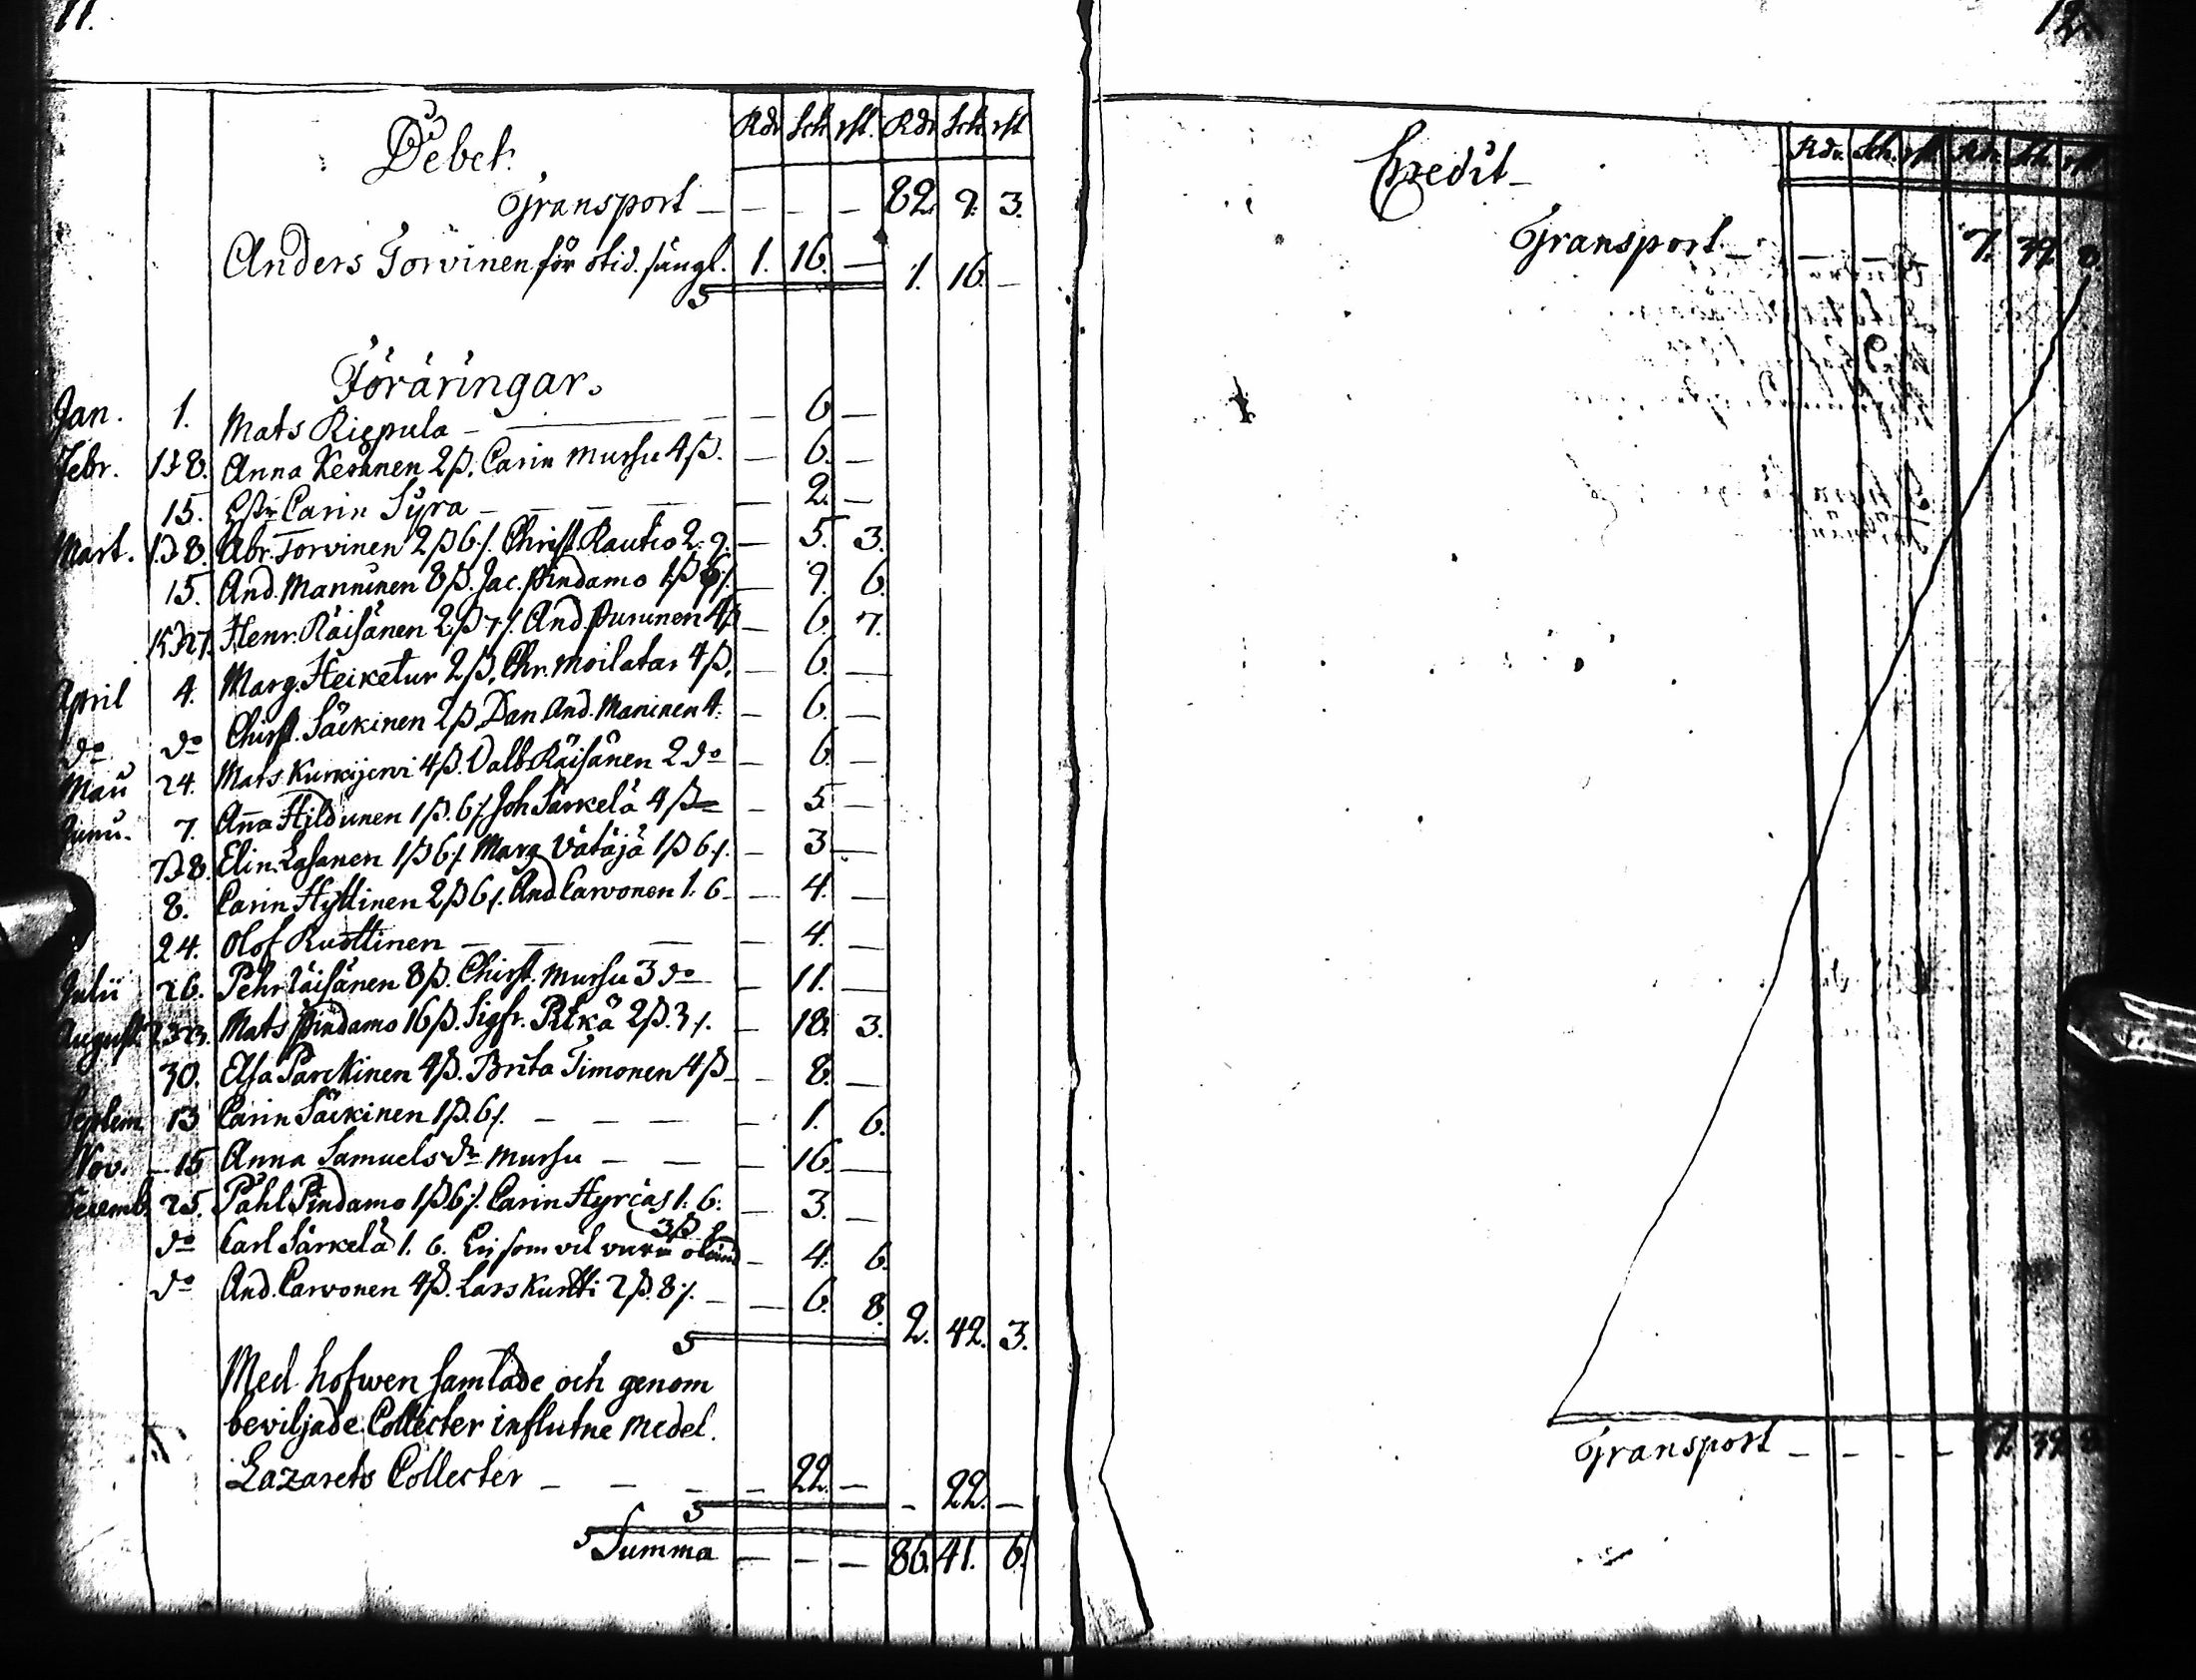 11.
Debet. Rdr Sch. rst. Rdr Sch. rst
Transport — — — — 82. 9. 3.
Anders Torvinen för otid. sängl. 1. 16. — 1. 16. —
Föräringar.
Jan. 1. Mats Riepula — — 6. —
Febr. 1 & 8. Anna Keränen 2 ß. Carin Mursu 4 ß. — 6. —
15. Carin Syra — — — — 2. —
Mart. 1 & 8. Abr. Torvinen 2 ß 6 /. Christ. Rautio 2. 9. — 5. 3.
15. And. Manninen 8 ß. Jac. Pindamo 1 ß 6 /. — 9. 6.
Henr. Räisänen 2 ß 7 /. And. Pununen 4 ß — 6. 7.
April 4. Marg. Heiketur 2 ß. Chr. Moilatar 4 ß. — 6. —
do do Christ. Säckinen 2 ß Dan. And. Maninen 4. — 6. —
Maii 24. Mats Kumijervi 4 ß. Valb. Räisänen 2 do — 6. —
Junii. 7. Aña Hildunen 1 ß. 6 /. Joh Särkelä 4 ß — 5. —
7 & 8. Elin. Lasanen 1 ß 6 /. Marg Vätäjä 1 ß 6 /. — 3. —
8. Carin Hyttinen 2 ß 6 /. And Carvonen 1. 6 — 4. —
24. Olof Ruottinen — — — — 4. —
Julii 26. Pehr Räisänen 8 ß. Christ. Mursu 3 do — 11. —
August. Mats Pindamo 16 ß. Sigfr. Pitkä 2 ß. 3 /. — 18. 3.
30. Elsa Parckinen 4 ß. Brita Timonen 4 ß — 8. —
Septem 13 Carin Säckinen 1 ß. 6 /. — — — — 1. 6.
Nov. 15 Anna Samuels dr Mursu — — — 16. —
Decemb. 25. Påhl Pindamo 1 ß 6 /. Carin Hyrcäs 1. 6. — 3. —
do Carl Särkelä 1. 6. En som vil vara okänd 3 ß — 4. 6.
do And. Carvonen 4 ß. Lars Kurtti 2 ß. 8 /. — 6. 8. 2. 42. 3.
Med hofwen samlade och genom
beviljade Collecter influtne medel.
Lazarets Collecter — — — — 22. — — 22. —
Summa — — — 86. 41. 6.
12.
Credit — Rdr. Sch. rst Rdr. Sch. rst
Transport — — — 7. 39. 8.
Transport — — — — 7. 39. 8.